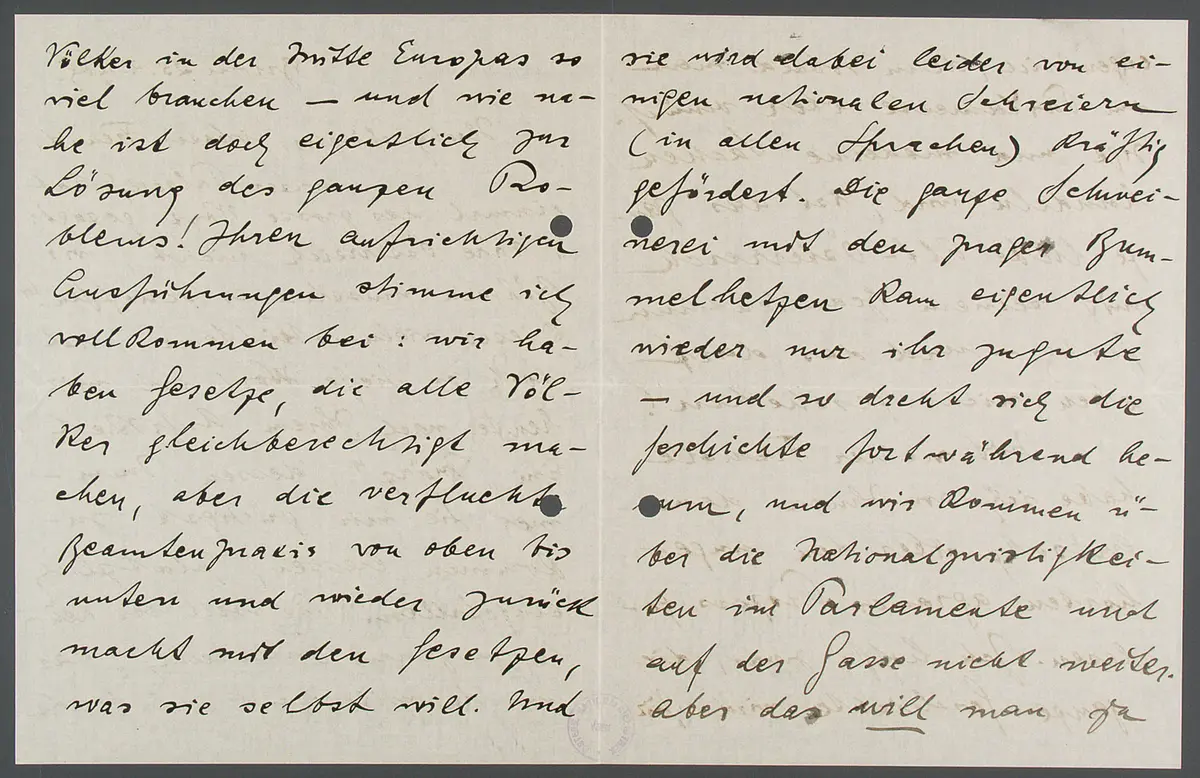 Völker in der Mitte Europas so
viel brauchen — und wie na-
he ist doch eigentlich zur
Lösung des ganzen Pro-
blems! Ihren aufrichtigen
Ausführungen stimme ich
vollkommen bei: wir ha-
ben Gesetze, die alle Völ-
ker gleichberechtigt ma-
chen, aber die verfluchte
Beamtenpraxis von oben bis
unten und wieder zurück
macht mit den Gesetzen,
was sie selbst will. Und
sie wird dabei leider von ei-
nigen nationalen Schreiern
(in allen Sprachen) kräftig
gefördert. Die ganze Schwei-
nerei mit den Prager Bum-
melhetzen kam eigentlich
wieder nur ihr zugute
— und so dreht sich die
Geschichte fortwährend he-
rum, und wir kommen ü-
ber die Nationalzwistigkei-
ten im Parlamente und
auf der Gasse nicht weiter.
Aber das will man ja